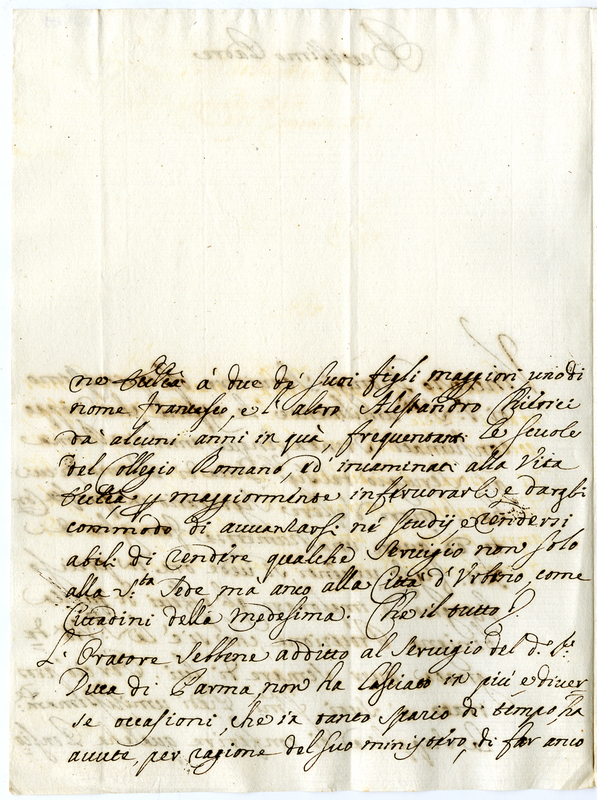 ne Eccl.ca à due de' suoi figli maggiori uno di
nome Francesco, e l'altro Alessandro
da alcuni anni in quà, frequentare le scuole
del Collegio Romano, ed incaminati alla Vita
maggiormente infervorarli e dargli
commodo di avvanzarsi ne' studij e rendersi
abili di rendere qualche servigio non solo
alla S.ta Sede, mà anco alla Città d'Urbino, come
Cittadini della medesima. Che il tutto
L'Oratore sebbene additto al servigio del d.o S.r
Duca di Parma, non ha lasciato in più, e diver
se occasioni, che in tanto spazio di tempo, ha
avute, per ragione del suo ministero, di far anco